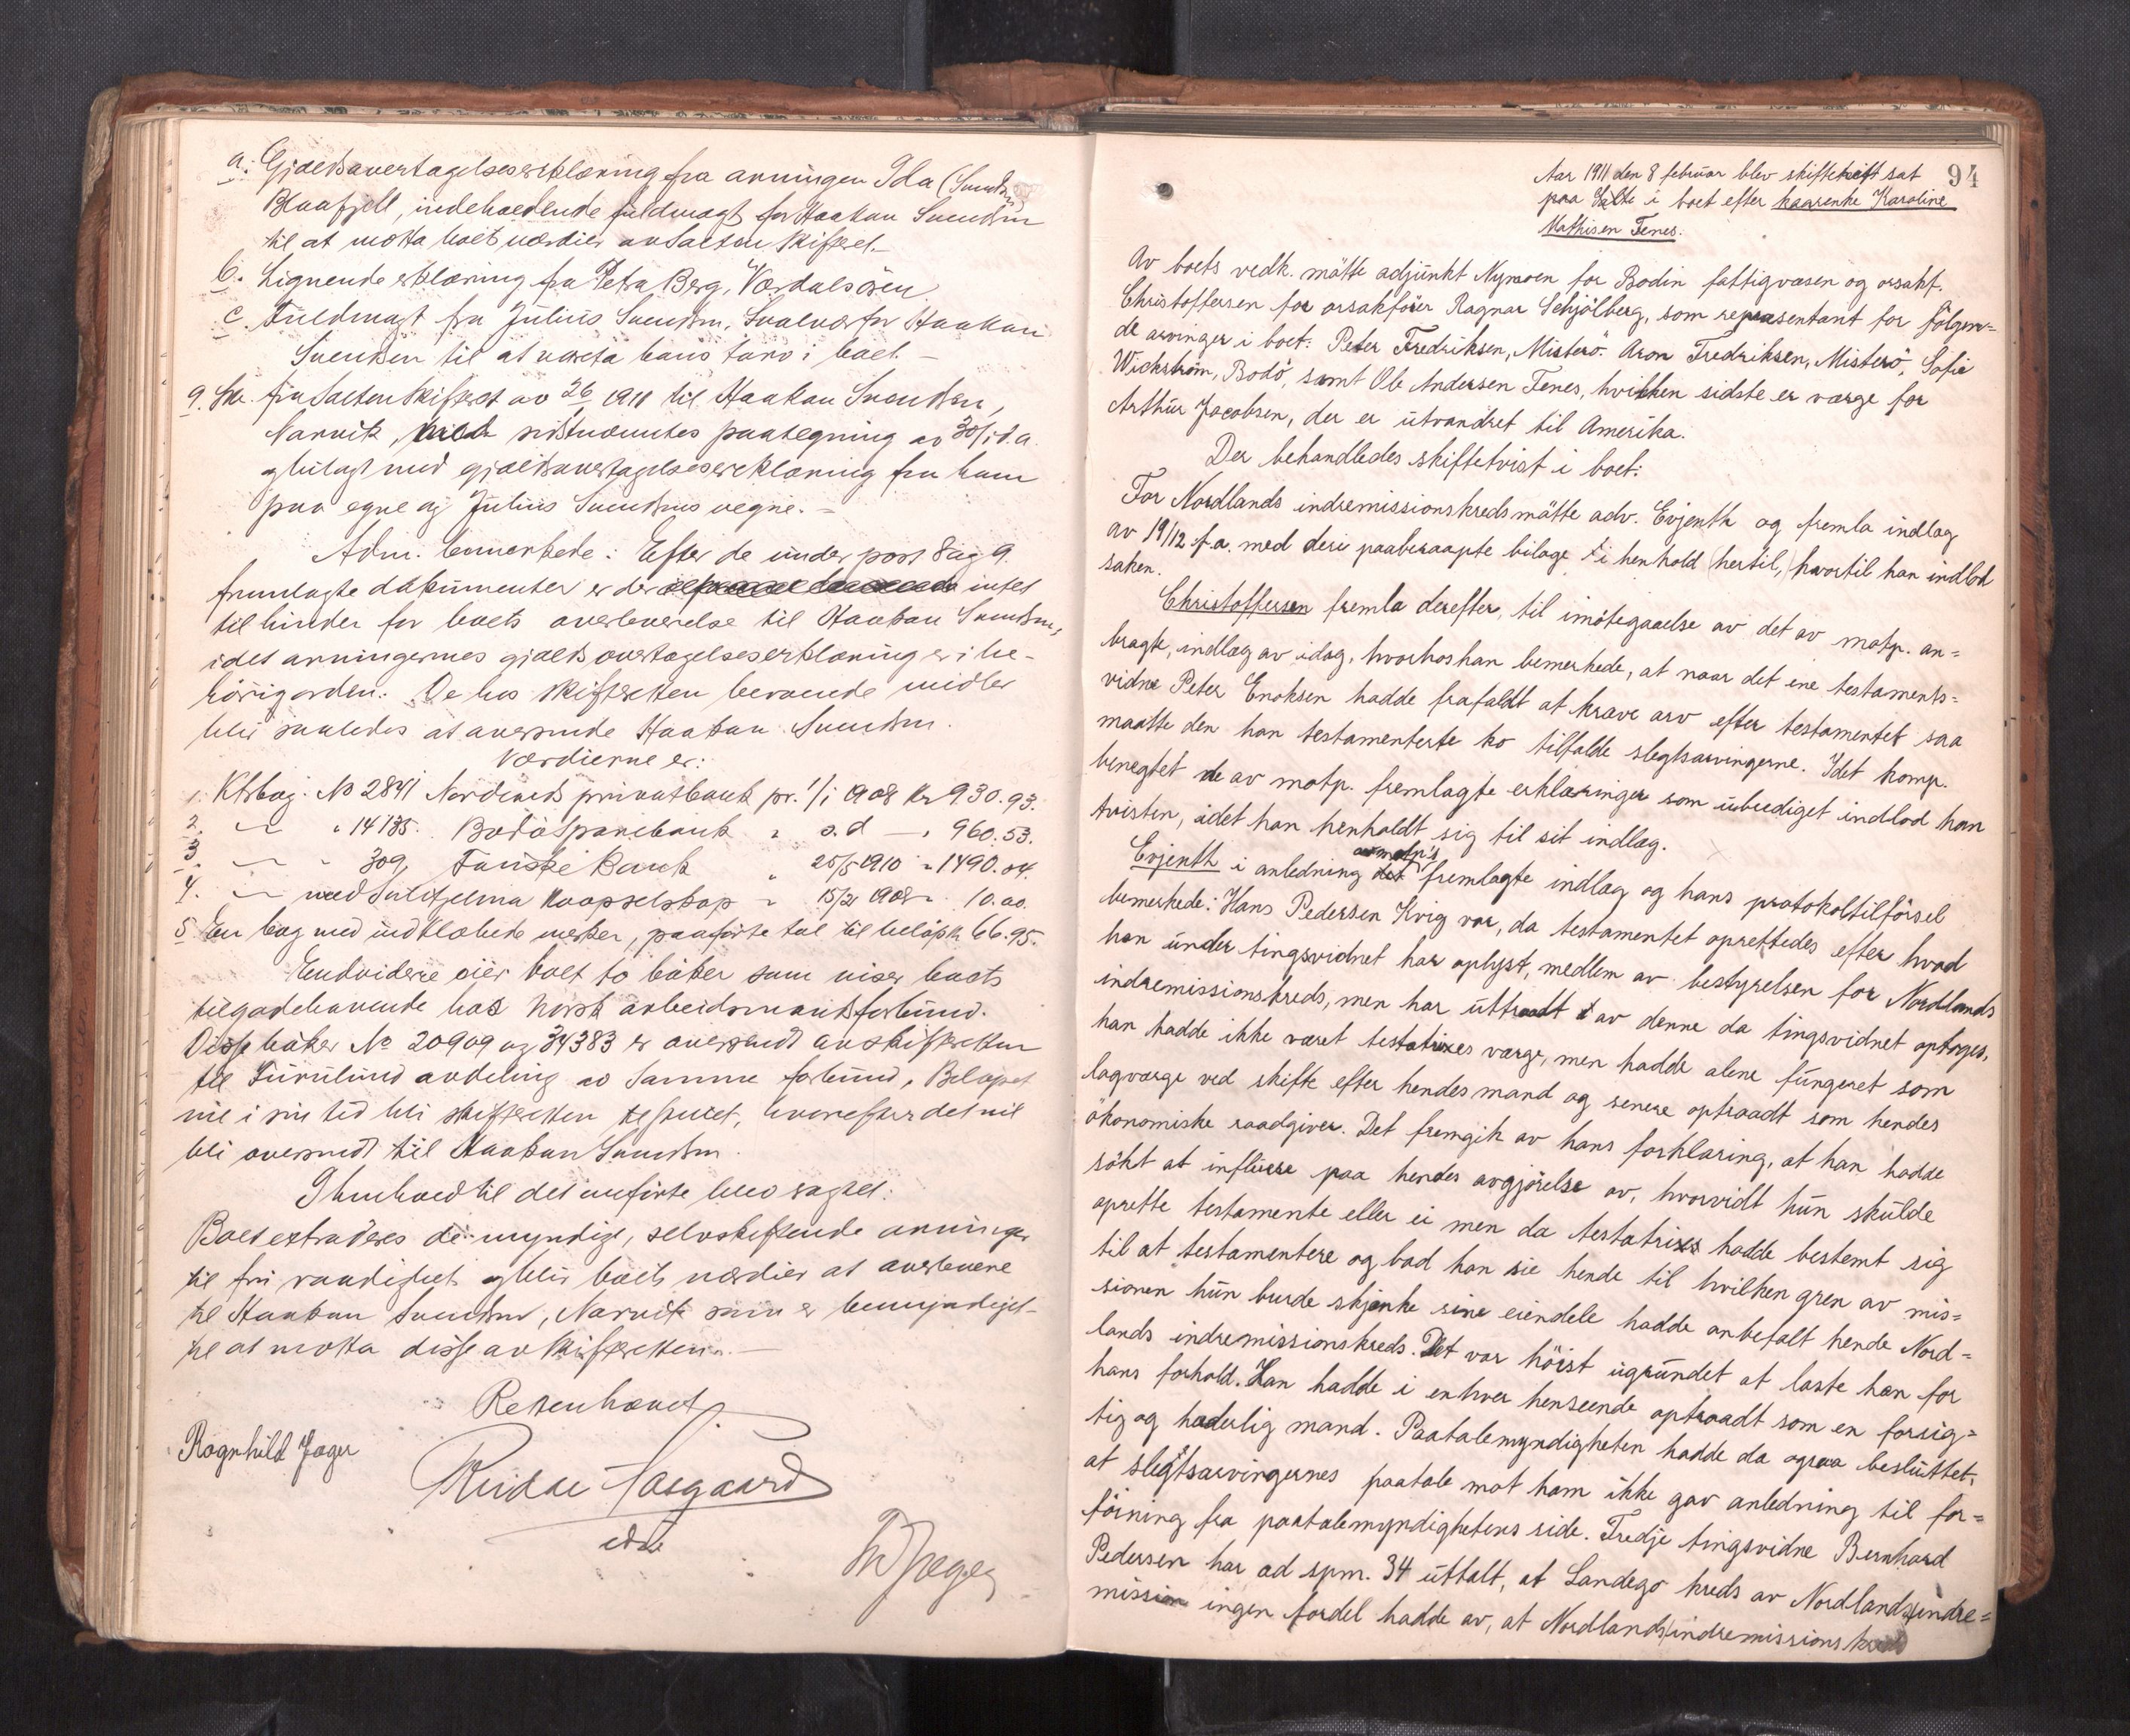 a. Gjældsovertagelseserklæring fra arvingen Ida (Svendsen)
Blaafjell, indeholdende fuldmagt for Haakon Svendsen
til at motta boets værdier av Salten skifteret.
b. Lignende erklæring fra Petra Berg, Værdalsören
c. Fuldmagt fra Julius Svendsen, Svolvær for Haakon
Svendsen til at vareta hans tarv i boet. –
9. Skr. fra Salten skifteret av 26/1 1911 til Haakon Svendsen,
Narvik, med sidstnævntes paategning av 30/1 d.a.
og bilagt med gjældsovertagelseserklæring fra ham
paa egne og Julius Svendsens vegne. –
Adm. bemerkede: Efter de under post 8 og 9
fremlagte dokumenter er der intet
til hinder for boets overleverelse til Haakon Svendsen,
idet arvingernes gjældsovertagelseserklæring er i be-
hörig orden. De hos skifteretten beroende midler
blir saaledes at oversende Haakon Svendsen.
Værdierne er:
1. Ktrbog. No 2841 Nordlands privatbank pr. 1/1 1908 kr 930.93.
2. — " 14135. Bodö Sparebank " s.d — " 960.53.
3. — " 309, Fauske Bank " 25/5 1910 " 1490.04.
4. — med Sulitjelma Kaapselskap " 15/2 1908 " 10.00.
5 En bog med indklæbede merker, paaförte tal til beløp kr 66.95.
Endvidere eier boet to böker som viser boets
tilgodehavende hos Norsk arbeidsmandsforbund.
Disse böker No 20909 og 34383 er oversendt av skifteretten
til Furulund avdeling av samme forbund. Belöpet
vil i sin tid bli skifteretten tilstillet, hvorefter det vil
bli oversendt til Haakon Svendsen.
I henhold til det anförte blev sagtet:
Boet extraderes de myndige, selvskiftende arvinger
til fri raadighet og blir boets værdier at overlevere
til Haakon Svendsen, Narvik som er bemyndiget
til at motta disse av skifteretten. —
Retten hævet
Ragnhild Jæger
Reidar Aasgaard
edsv
Jæger
94
Aar 1911 den 8 februar blev skifteret sat
paa Salte i boet efter Kaarenke Karoline
Mathisen Fenes.
Av boets vedk. mötte adjunkt Nymoen for Bodin fattigvæsen og orsakf.
Christoffersen for orsakförer Ragnar Schjölberg, som repræsentant for fölgen=
de arvinger i boet: Peter Fredriksen, Misterö. Aron Fredriksen, Misterö, Sofie
Wickström, Bodö, samt Ole Andersen Fenes, hvilken sidste er værge for
Arthur Jacobsen, der er utvandret til Amerika.
Der behandledes skiftetvist i boet:
For Nordlands indremissionskreds mötte adv. Evjenth og fremla indlæg
av 19/12 f.a. med deri paaberaapte bilage i henhold hertil, hvortil han indlod
saken.
Christoffersen fremla derefter, til imötegaaelse av det av motp. an=
bragte, indlæg av idag, hvorhos han bemerkede, at naar det ene testaments=
vidne Peter Enoksen hadde frafaldt at kræve arv efter testamentet saa
maatte den han testamenterte ko tilfalde slegtsarvingerne. Idet komp.
benegtet de av motp. fremlagte erklæringer som ubeediget indlod han
tvisten, idet han henholdt sig til sit indlæg.
Evjenth i anledning av motp's fremlagte indlæg og hans protokoltilförsel
bemerkede: Hans Pedersen Kvig var, da testamentet oprettedes efter hvad
han under tingsvidnet har oplyst, medlem av bestyrelsen for Nordlands
indremissionskreds, men har uttraadt av denne da tingsvidnet optoges,
han hadde ikke været testatrixes værge, men hadde alene fungeret som
lagværge ved skifte efter hendes mand og senere optraadt som hendes
ökonomiske raadgiver. Det fremgik av hans forklaring, at han hadde
sökt at influere paa hendes avgjörelse av, hvorvidt hun skulde
oprette testamente eller ei men da testatrixs hadde bestemt sig
til at testamentere og bad han sie hende til hvilken gren av mis=
sionen hun burde skjenke sine eiendele hadde anbefalt hende Nord=
lands indremissionskreds. Det var höist ugrundet at laste han for
hans forhold. Han hadde i enhver henseende optraadt som en forsig=
tig og hæderlig mand. Paatalemyndigheten hadde da ogsaa besluttet,
at slegtsarvingernes paatale mot ham ikke gav anledning til for=
föining fra paatalemyndighetens side. Tredje tingsvidne Bernhard
Pedersen har ad spm. 34 uttalt, at Landego kreds av Nordlands indre=
mission ingen fordel hadde av, at Nordlands indremissionskreds